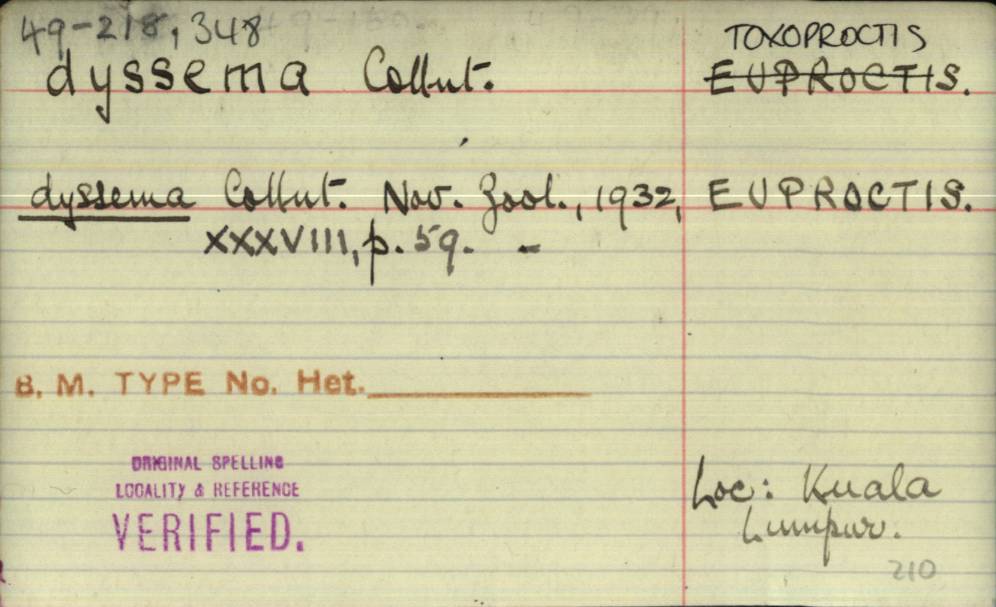 49-218, 348
TOXOPROCTIS
dyssema Collnt. EUPROCTIS.
dyssema Collnt. Nov. Zool., 1932, EUPROCTIS.
XXXVIII, p. 59. -
B. M. TYPE No. Het.
ORIGINAL SPELLING
LOCALITY & REFERENCE
VERIFIED.
Loc: Kuala
Lumpur.
210